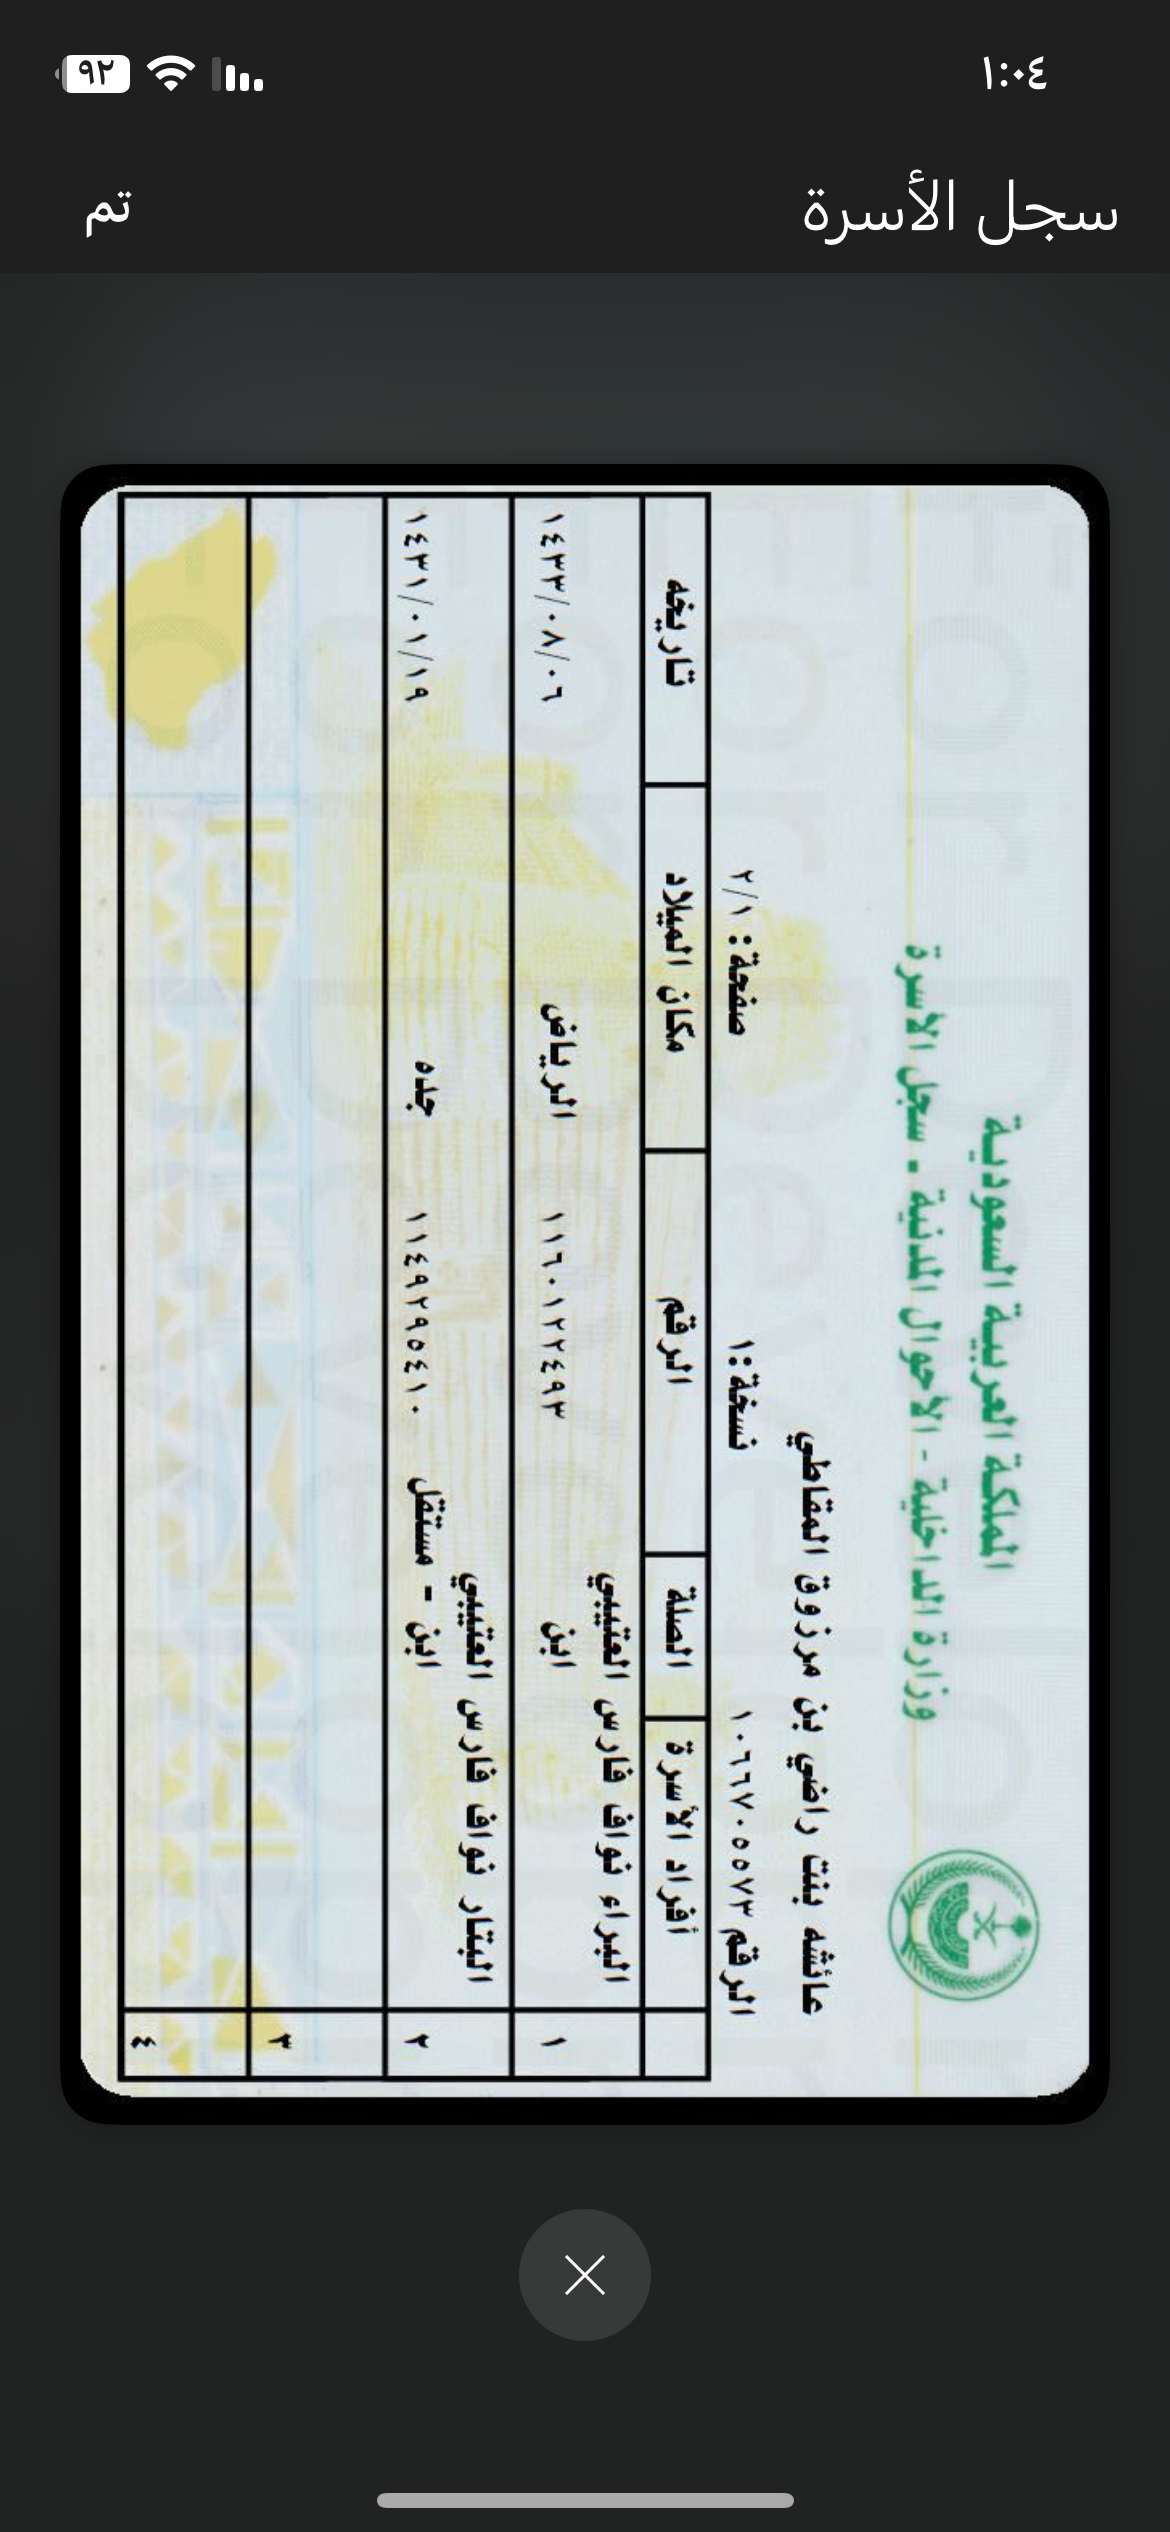 ١:٠٤
٩٢
سجل الأسرة
تم
المملكة العربية السعودية
وزارة الداخلية - الأحوال المدنية - سجل الأسرة
عائشه بنت راضي بن مرزوق المقاطي
الرقم ١٠٦٦٧٠٥٥٧٣ نسخة:١ صفحة: ٢/١
أفراد الأسرة الصلة الرقم مكان الميلاد تاريخه
١ البراء نواف فارس العتيبي
ابن ١١٦٠١٢٢٤٩٣ الرياض ١٤٣٣/٠٨/٠٦
٢ البتار نواف فارس العتيبي
ابن - مستقل ١١٤٩٢٩٥٤١٠ جده ١٤٣١/٠١/١٩
٣
٤